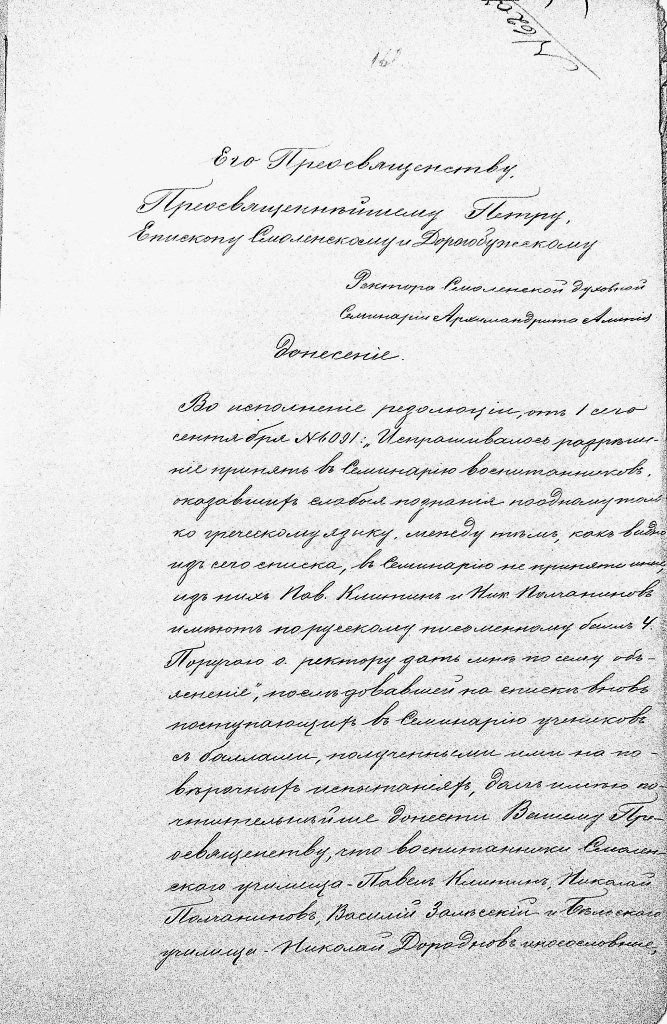 162
Его Преосвященству,
Преосвященнѣйшему Петру,
Епископу Смоленскому и Дорогобужскому
Ректора Смоленской духовной
Семинаріи Архимандрита
Донесеніе.
Во исполненіе резолюціи, отъ 1 сего
сентября №6091: „Испрашивалось разрѣше-
ніе принять въ Семинарію воспитанниковъ,
оказавшихъ слабыя познанія по одному толь
ко греческому языку. между тѣмъ, какъ видно
изъ сего списка, въ Семинарію не приняты иные,
изъ нихъ Пав. Клитинъ и Ник. Полчаниновъ
имѣютъ по русскому письменному баллъ 4.
Поручаю о. ректору дать мнѣ по сему объ-
ясненіе", послѣдовавшей на спискѣ вновь
поступающихъ въ Семинарію учениковъ
съ баллами, полученными ими на по-
вѣрочныхъ испытаніяхъ, долгъ имѣю по-
чтительнѣйше донести Вашему Пре-
освященству, что воспитанники Смолен-
скаго училища - Павелъ Клитинъ, Николай
Полчаниновъ, Василій Залѣсскій и Бѣльскаго
училища - Николай Дородновъ иносословные,